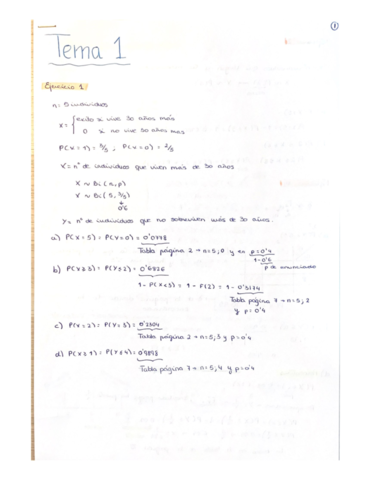 1
Tema 1
Ejercicio 1
n: 5 individuos
X = { exito si vive 30 años más
0 si no vive 30 años mas
P(X=1) = 3/5, P(X=0) = 2/5
X = nº de individuos que viven más de 30 años
X ~ Bi(n,p)
X ~ Bi(5, 3/5)
↓
0'6
Y = nº de individuos que no sobreviven más de 30 años.
a) P(X=5) = P(Y=0) = 0'0778
Tabla página 2 → n=5, 0 y en p=0'4
1-0'6
p de enunciado
b) P(X≥3) = P(Y≤2) = 0'6826
1 - P(X<3) = 1 - F(2) = 1 - 0'3174
Tabla página 7 → n=5, 2
y p=0'4
c) P(X=2) = P(Y=3) = 0'2304
Tabla página 2 → n=5, 3 y p=0'4
d) P(X≥1) = P(Y≤4) = 0'9898
Tabla página 7 → n=5, 4 y p=0'4